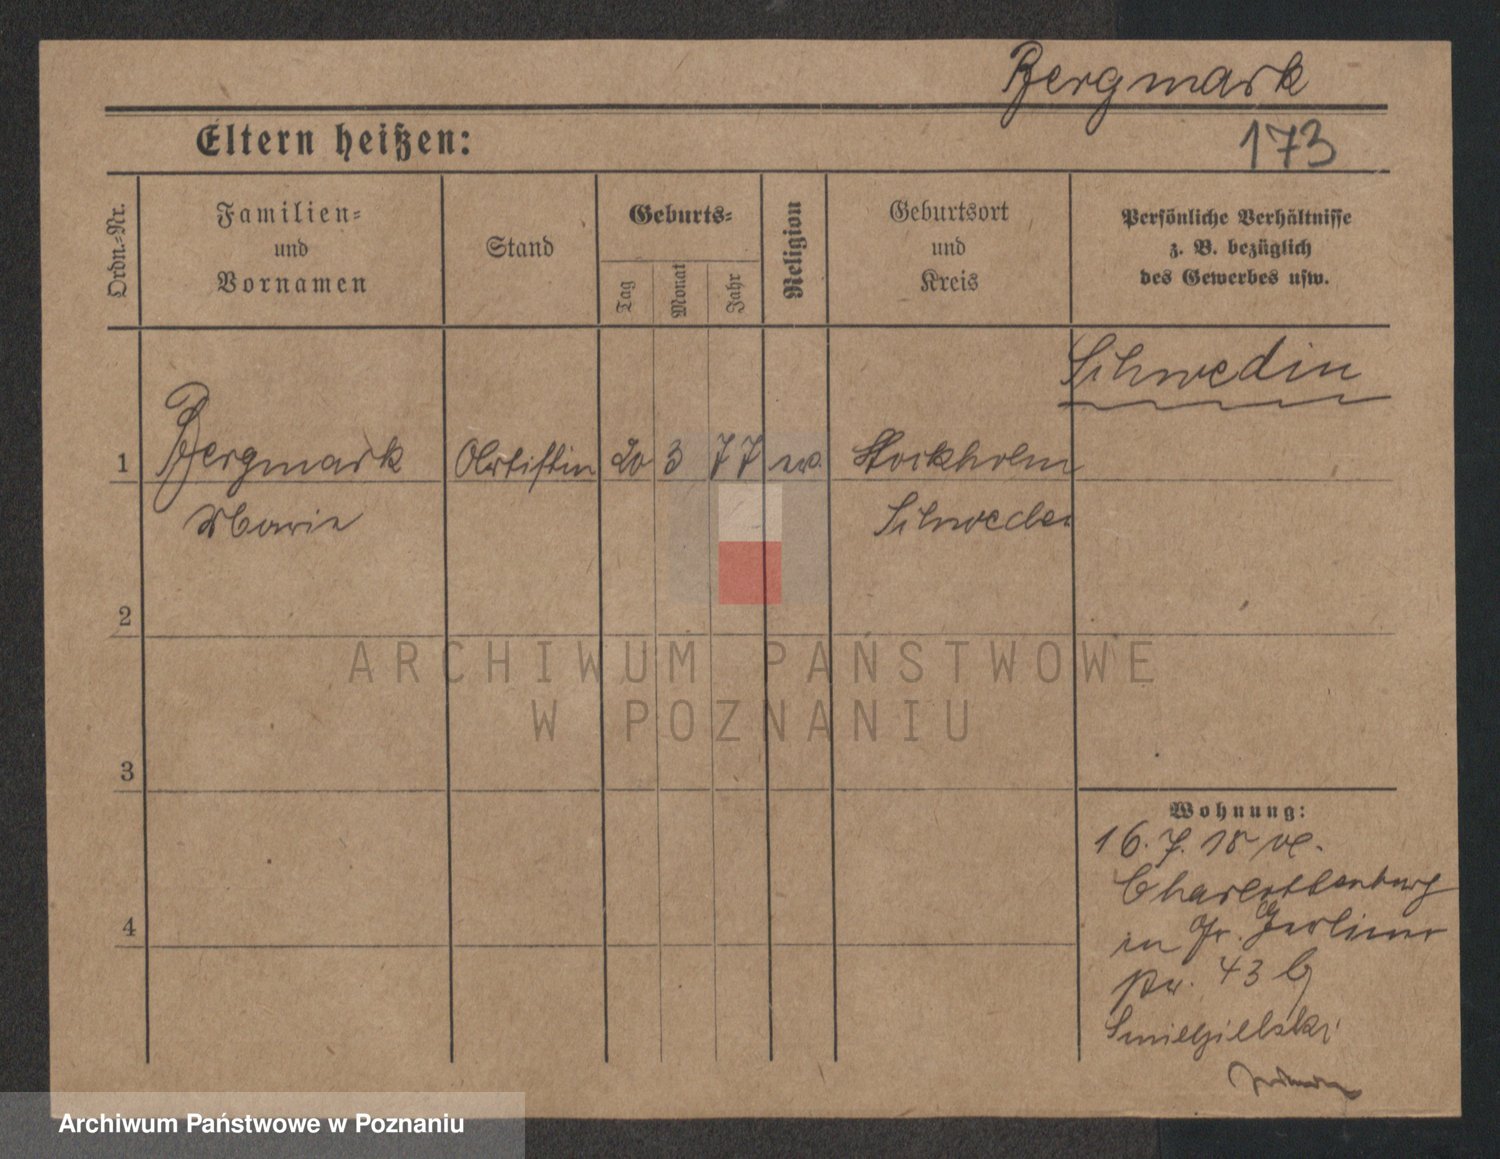 Bergmark
173
Eltern heißen:
Ordn.-Nr.
Familien-
und
Vornamen
Stand
Geburts-
Tag
Monat
Jahr
Religion
Geburtsort
und
Kreis
Persönliche Verhältnisse
z. B. bezüglich
des Gewerbes usw.
Schwedin
1 Bergmark Artistin 20 3 77 ev. Stockholm
Marie Schweden
2
ARCHIWUM PAŃSTWOWE
W POZNANIU
3
Wohnung:
16. 7. 18 v.
Charlottenburg
in Gr. Berliner
4
43 b
Smielzielski
Archiwum Państwowe w Poznaniu